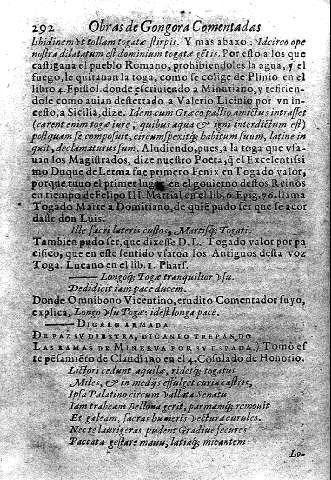 292 Obras de Gongora Comentadas
libidinem et tollam togatæ stirpis. Y mas abaxo: Idcirco ope
nostra dilatatum est dominium togatæ gẽtis. Por esto a los que
castigaua el pueblo Romano, prohibiendoles la agua, y el
fuego, le quitauan la toga, como se colige de Plinio en el
libro 4. Epistol. donde escriuiendo a Minutiano, y refirien-
dole como auian desterrado a Valerio Licinio por vn in-
cesto, a Sicilia, dize. Idem cum Græco pallio amictus intrasset
(carent enim togæ iure, quibus aqua & igni interdictum est)
postquam se composuit, circunspexitq; habitum suum, latine in
quit, declamaturus sum. Aludiendo, pues, a la toga que vsa-
uan los Magistrados, dize nuestro Poeta, q̃ el Excelentissi
mo Duque de Lerma fue primero Fenix en Togado valor,
porque tuuo el primer lugar en el gouierno destos Reinos
en tiempo de Felipo III. Martial en el lib. 6. Epig. 76. llama
Togado Marte a Domitiano, de quiẽ pudo ser que se acor
dasse don Luis.
Ille sacri lateris custos, Martisq; Togati.
Tambien pudo ser, que dixesse D. L. Togado valor por pa
cifico, que en este sentido vsaron los Antiguos desta voz
Toga. Lucano en el lib. 1. Phars.
Longoq; Togæ tranquilior vsu
Dedidicit iam pace ducem.
Donde Omnibono Vicentino, erudito Comentador suyo,
explica, Longo vsu Togæ idest longa pace.
DIGALO ARMADA
DE PAZ SV DIESTRA, DIGANLO TREPANDO
LAS RAMAS DE MINERVA POR SV ESPADA.) Tomó es
te pẽsamiẽto de Claudiano en el 4. Cõsulado de Honorio.
Lictori cedunt aquilæ, ridetq; togatus
Miles, & in medijs effulget curia castris,
Ipsa Palatino circum vallata Senatu
Iam trabeam Bellona gerit, parmamq; remouit
Et galeam, sacras humeris vectura curules.
Nec te laurigeras pudeat Gradiue secures
Paccata gestare manu, latiaq; micantem
Lo-